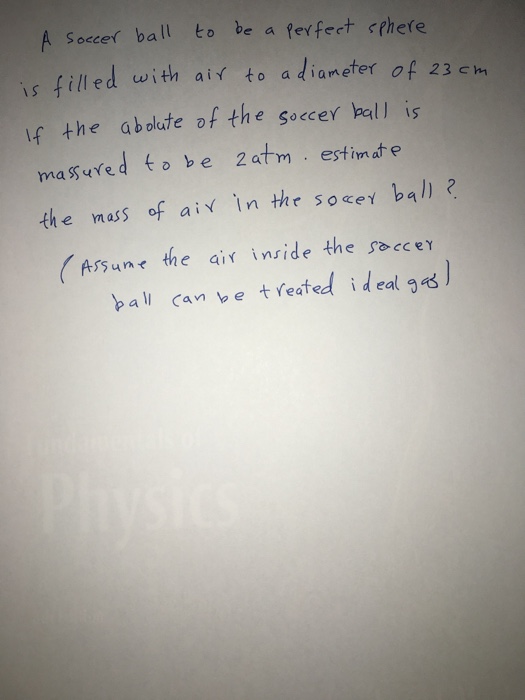 A soccer ball to be a perfect sphere
is filled with air to a diameter of 23 cm
If the abolute of the soccer ball is
massured to be 2 atm. estimate
the mass of air in the soccer ball ?
(Assume the air inside the soccer
ball can be treated ideal gas)
Physics